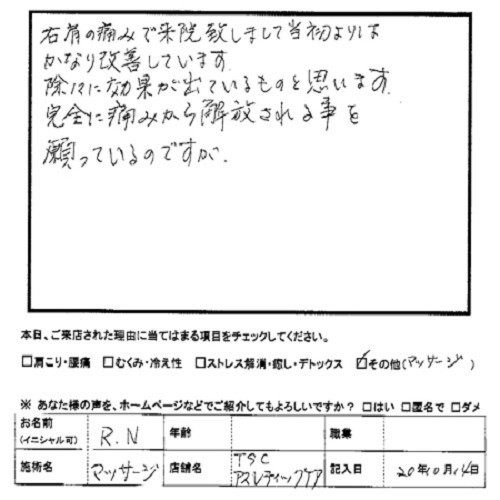 右肩の痛みで来院致しまして当初よりは
かなり改善しています。
除々に効果が出ているものと思います。
完全に痛みから解放される事を
願っているのですが。
本日、ご来店された理由に当てはまる項目をチェックしてください。
□肩こり・腰痛 □むくみ・冷え性 □ストレス解消・癒し・デトックス ☑その他(マッサージ)
※ あなた様の声を、ホームページなどでご紹介してもよろしいですか？ □はい □匿名で □ダメ
お名前(イニシャル可) R.N 年齢 職業
施術名 マッサージ 店舗名 TSCアスレティックケア 記入日 20年10月14日